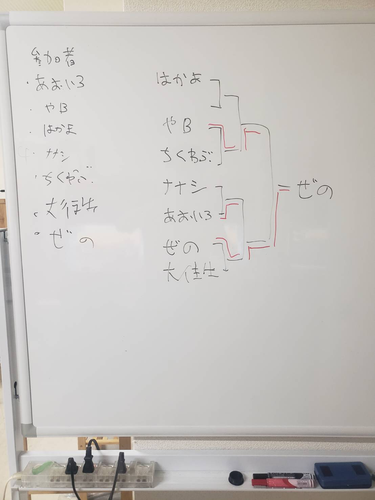 参加者
・あおいろ
・やB
・はかま
・ナナシ
・ちくわぶ
・大佳士
・ぜの
はかま
やB
ちくわぶ
ナナシ
あおいろ
ぜの
大佳士
ぜの